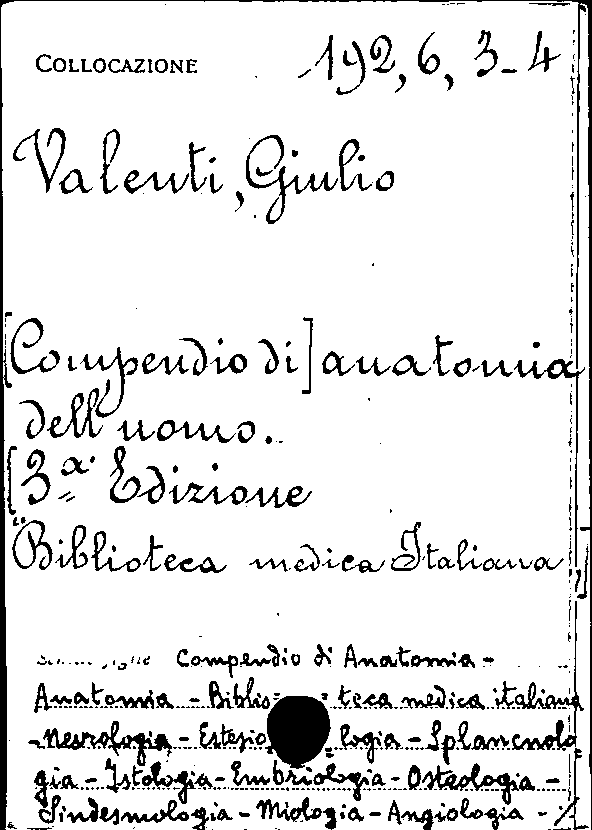 COLLOCAZIONE 192, 6, 3-4
Valenti, Giulio
[Compendio di] anatomia
dell'uomo.
[3ª Edizione
"Biblioteca medica Italiana"]
Compendio di Anatomia -
Anatomia - Biblio= =teca medica italiana
- Nevrologia - Estesio= logia - Splancnolo=
gia - Istologia - Embriologia - Osteologia -
Sindesmologia - Miologia - Angiologia - ·/.